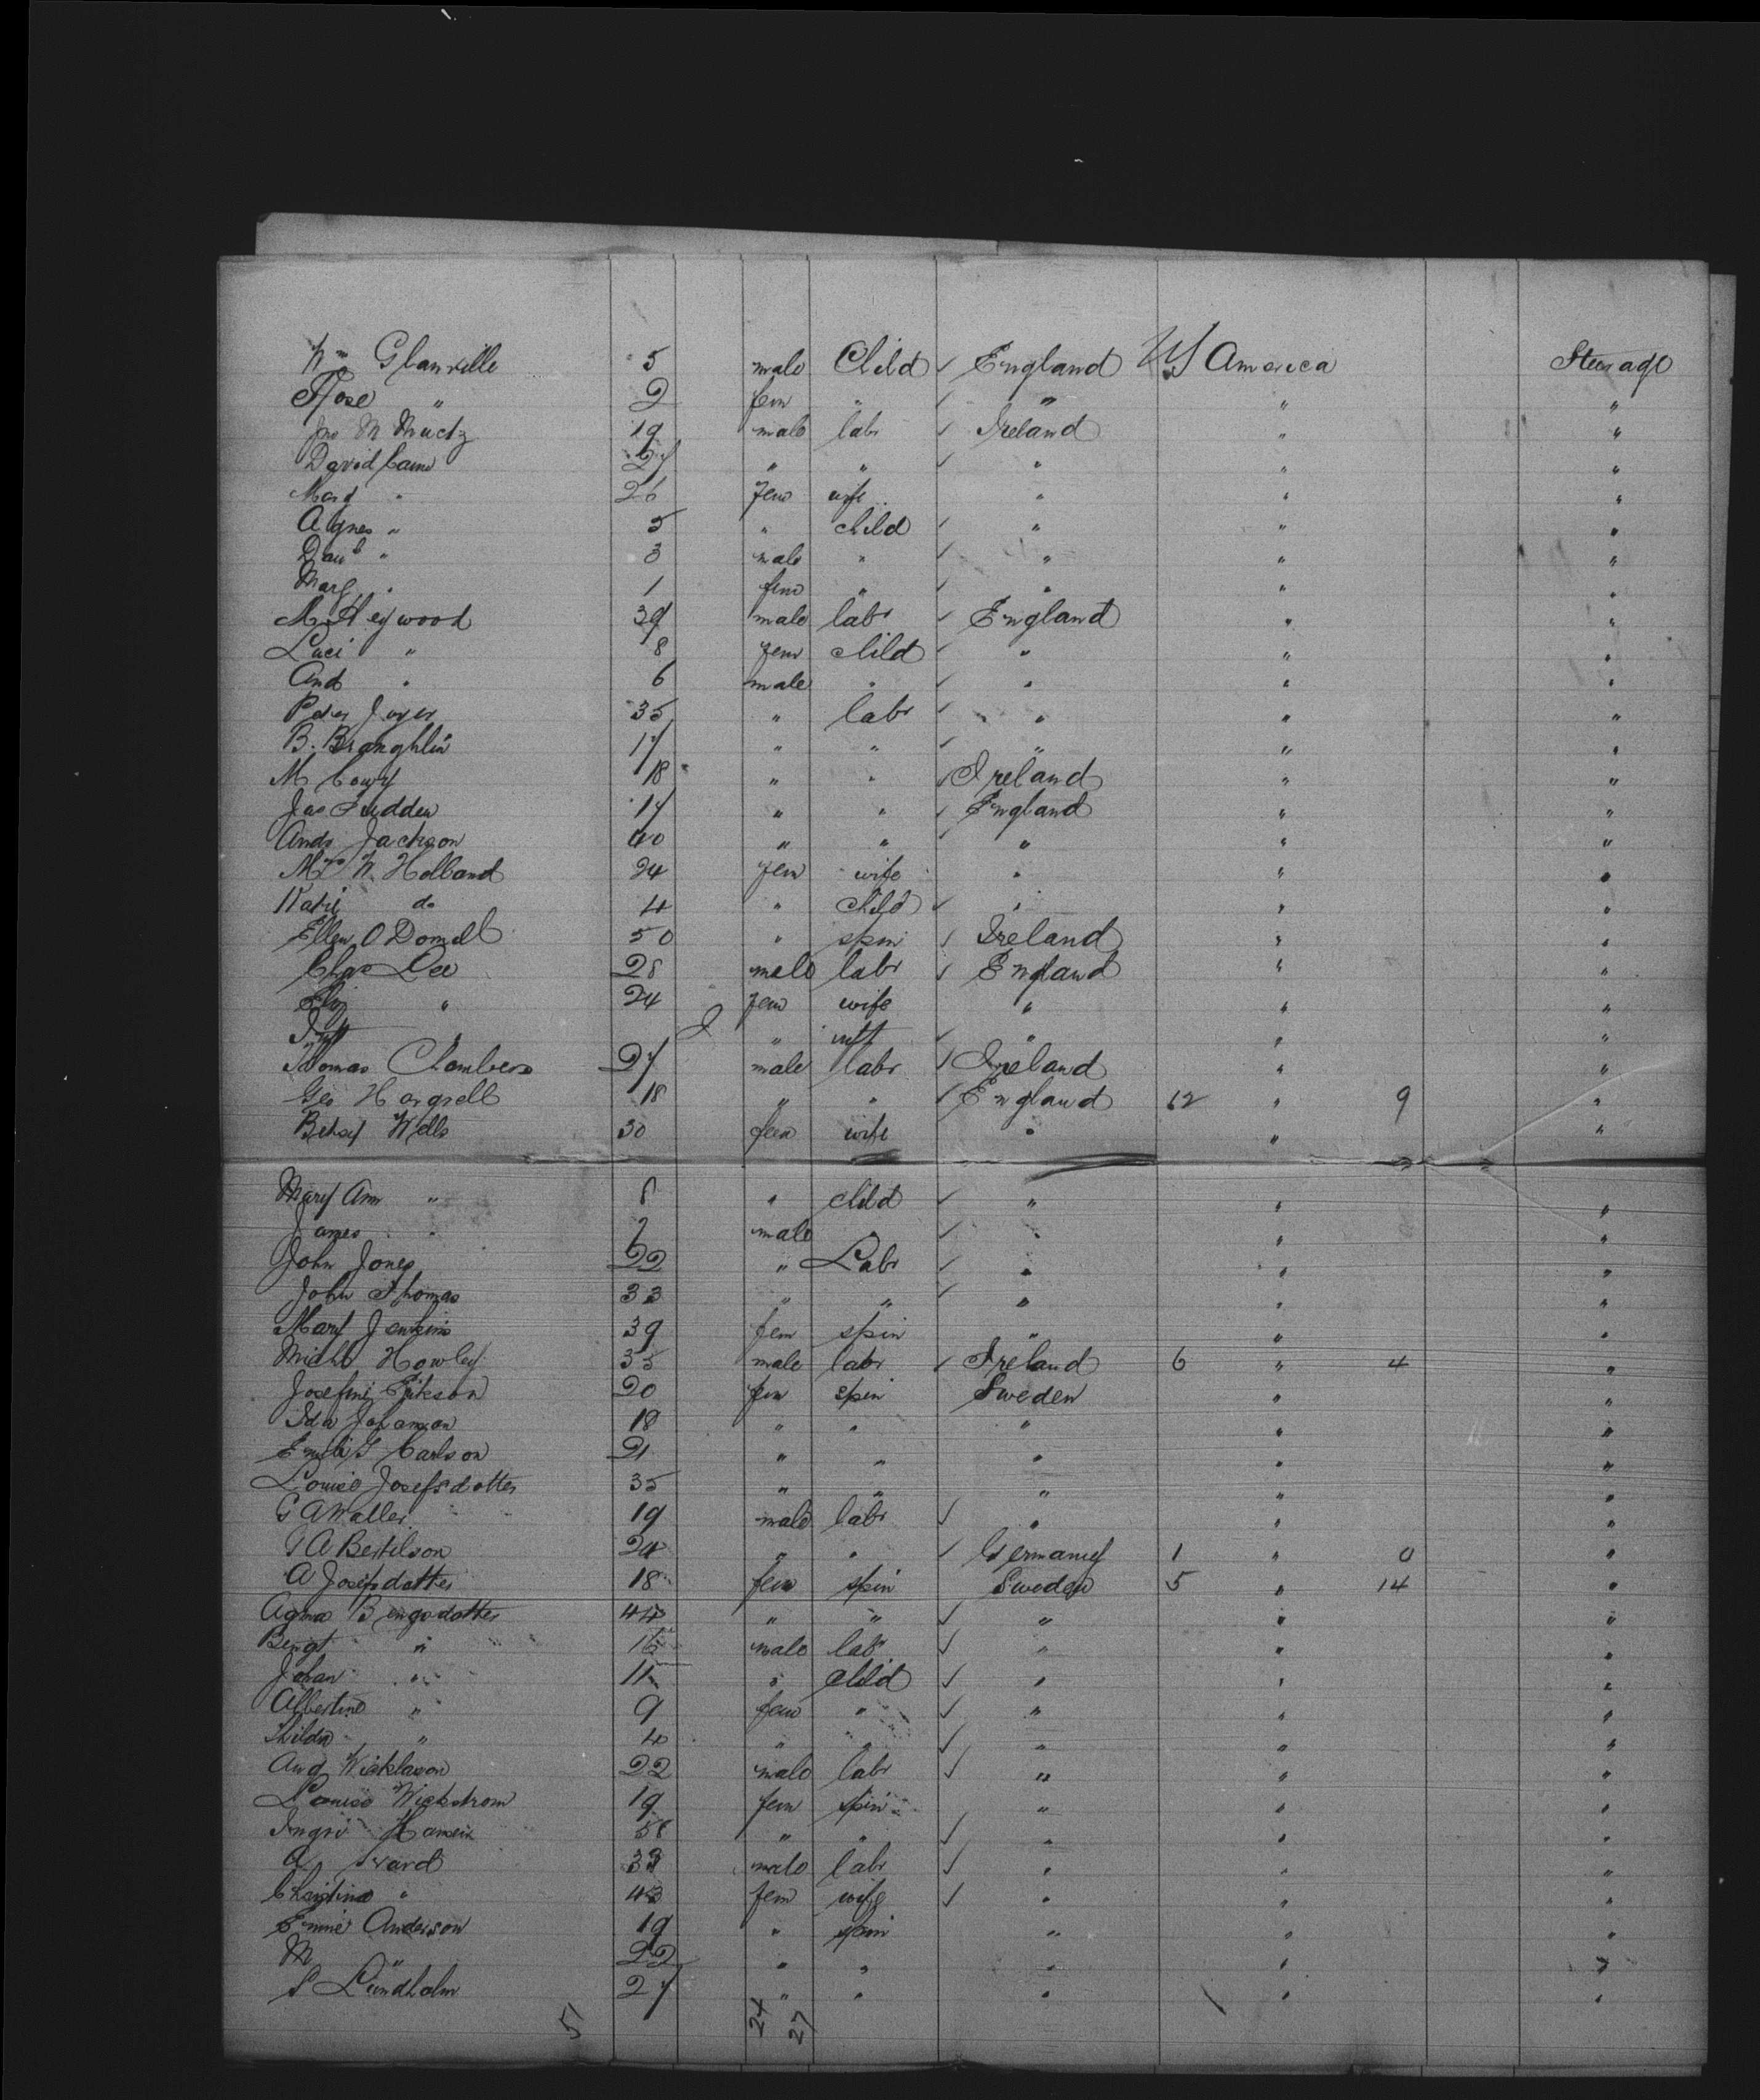 Wm Glanville 5 male Child ✓ England U.S America Steerage
Rose " 2 fem " ✓ " " "
Jno M 19 male labr ✓ Ireland " "
David Cain 27 " " ✓ " " "
Marg " 26 fem wife " " "
Agnes " 5 " child ✓ " " "
Davd " 3 male " ✓ " " "
Marg " 1 fem " ✓ " " "
M Heywood 39 male labr ✓ England " "
Luci " 8 fem child ✓ " " "
And " 6 male " ✓ " " "
Peter Joyer 35 " labr ✓ " " "
B. Branghlin 17 " " ✓ " " "
M 18 " " ✓ Ireland " "
Jas 17 " " ✓ England " "
Andr Jackson 40 " " ✓ " " "
Mrs W. Holland 24 fem wife " " "
Katie do 4 " child ✓ " " "
Ellen O Donnell 50 " spin ✓ Ireland " "
Chas Lee 28 male labr ✓ England " "
Eliz " 24 fem wife " " "
Inft " " inft ✓ " " "
Thomas Chambers 27 male labr ✓ Ireland " "
Geo Hargrell 18 " " ✓ England 62 " 9 "
Betsey Wells 30 fem wife " " "
Mary Ann " 8 " child ✓ " " "
James " male " ✓ " " "
John Jones 22 " Labr ✓ " " "
John Thomas 33 " " ✓ " " "
Mary Jenkins 39 fem spin " " "
Michl Howley 35 male labr ✓ Ireland 6 " 4 "
Josefini Erikson 20 fem spin Sweden " "
Ida Johanson 18 " " " " "
Carlson 21 " " " " "
Louise Josefsdotter 35 " " " " "
G A Waller 19 male labr ✓ " " "
G A Bertilson 24 " " ✓ Germany 1 " 0 "
A Josefsdotter 18 fem spin Sweden 5 " 14 "
Agna Bengsdotter 44 " " ✓ " " "
Bengt " male labr ✓ " " "
Johan " 11 " child ✓ " " "
Albertine " 9 fem " ✓ " " "
Hilda " 4 " " ✓ " " "
Aug Wicklason 22 male labr ✓ " " "
Louise Wickstrom 19 fem spin " " "
Ingri Hansen 58 " " ✓ " " "
A Svard male labr ✓ " " "
Christina " 43 fem wife ✓ " " "
Emmie Anderson 19 " spin " " "
M " 22 " " " " "
S Lundholm 27 " " " " "
51 24 27